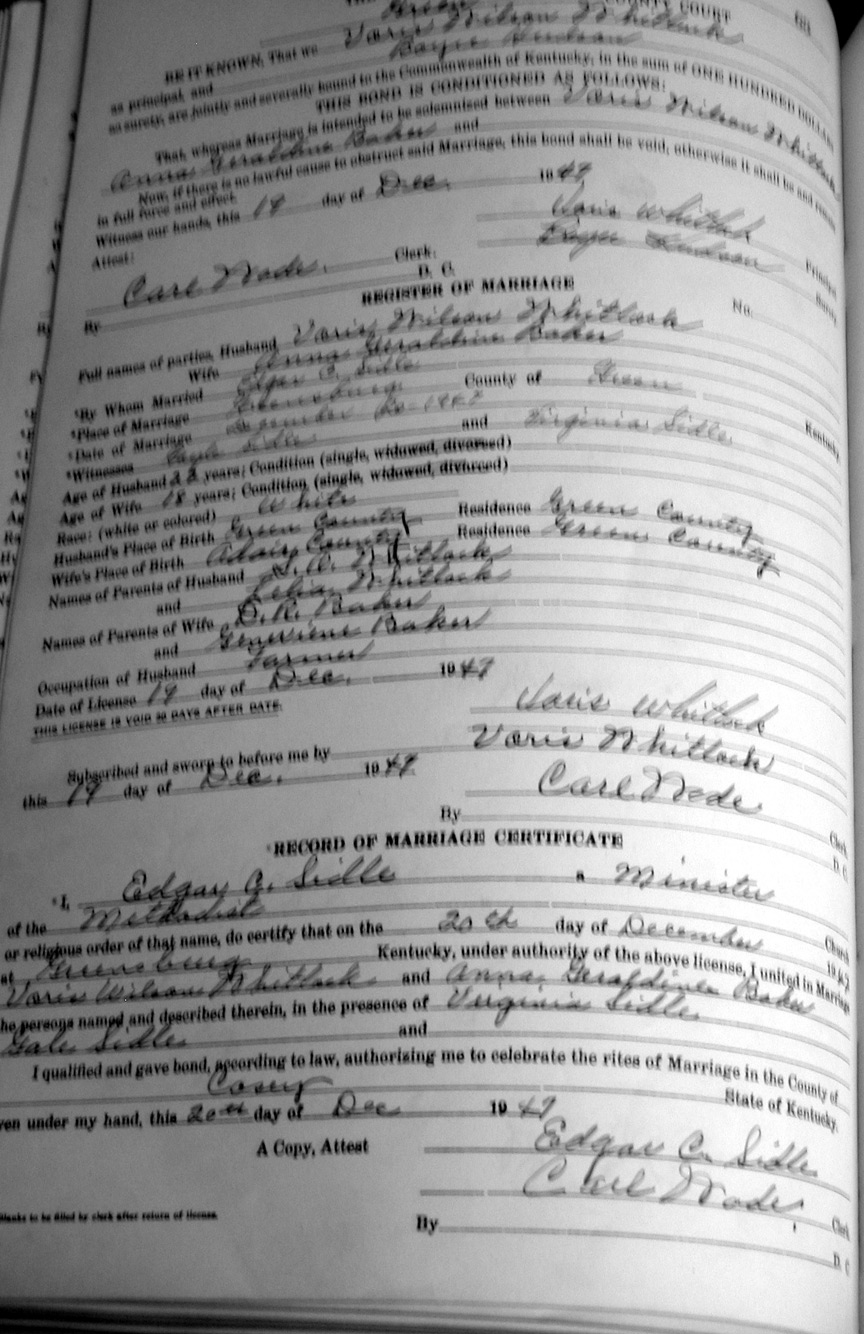 COUNTY COURT
Green
Voris Wilson Whitlock
BE IT KNOWN, That we
as principal, and
as surety, are jointly and severally bound to the Commonwealth of Kentucky, in the sum of ONE HUNDRED DOLLARS
THIS BOND IS CONDITIONED AS FOLLOWS:
That, whereas Marriage is intended to be solemnized between Voris Wilson Whitlock
Anna Geraldine Baker and
Now, if there is no lawful cause to obstruct said Marriage, this bond shall be void, otherwise it shall be and remain
in full force and effect.
Witness our hands, this 19 day of Dec. 1947
Attest: Voris Whitlock Principal
Hudson Surety
Carl Wade. Clerk.
By D. C.
REGISTER OF MARRIAGE
No.
Full names of parties, Husband Voris Wilson Whitlock
Wife Anna Geraldine Baker
*By Whom Married Edgar C. Sidle
*Place of Marriage Greensburg County of Green Kentucky
*Date of Marriage 20-1947
*Witnesses Gayle Sidle and Virginia Sidle
Age of Husband 22 years; Condition (single, widowed, divorced)
Age of Wife 18 years; Condition (single, widowed, divorced)
Race: (white or colored) White
Husband's Place of Birth Green County Residence Green County
Wife's Place of Birth Adair County Residence Green County
Names of Parents of Husband Whitlock
and Whitlock
Names of Parents of Wife D.R. Baker
and Genevieve Baker
Occupation of Husband Farmer
Date of License 19 day of Dec. 1947
THIS LICENSE IS VOID 30 DAYS AFTER DATE.
Voris Whitlock
Subscribed and sworn to before me by Voris Whitlock
this 19 day of Dec. 1947
Carl Wade Clerk
By D. C.
RECORD OF MARRIAGE CERTIFICATE
*I, Edgar C. Sidle a Minister
of the Methodist Church
or religious order of that name, do certify that on the 20th day of December 1947
at Greensburg Kentucky, under authority of the above license, I united in Marriage
Voris Wilson Whitlock and Anna Geraldine Baker
the persons named and described therein, in the presence of Virginia Sidle
Gale Sidle and
I qualified and gave bond, according to law, authorizing me to celebrate the rites of Marriage in the County of
Casey State of Kentucky.
ven under my hand, this 20th day of Dec 1947
Edgar C. Sidle
A Copy, Attest
Carl Wade Clerk
Blanks to be filled by clerk after return of license.
By D. C